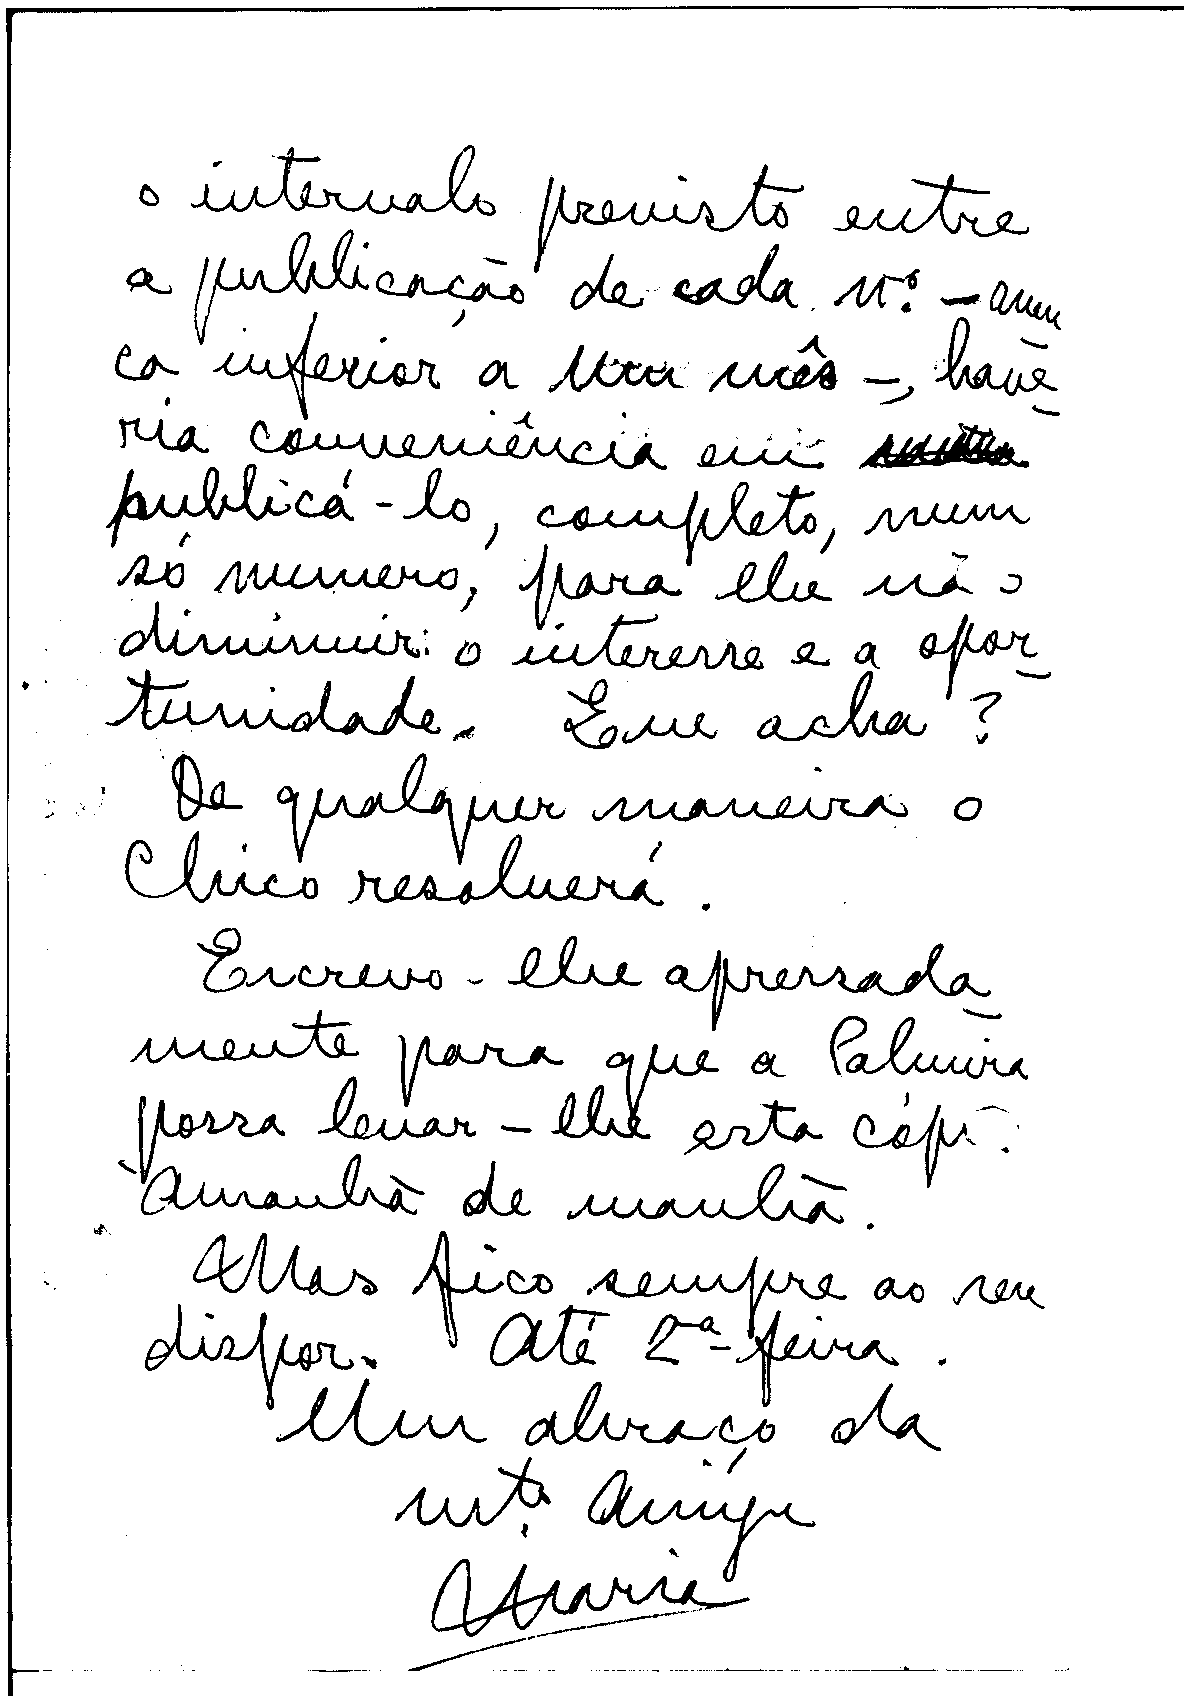 o intervalo previsto entre
a publicação de cada nº. – nun
ca inferior a um mês –, have-
ria conveniência em
publicá-lo, completo, num
só numero, para lhe não
diminuir o interesse e a opor-
tunidade. Que acha?
De qualquer maneira o
Chico resolverá.
Escrevo-lhe apressada-
mente para que a Palmira
possa levar-lhe esta cópi
Amanhã de manhã.
Mas fico sempre ao seu
dispor. Até 2ª-feira.
Um abraço da
mtº. amiga
Maria